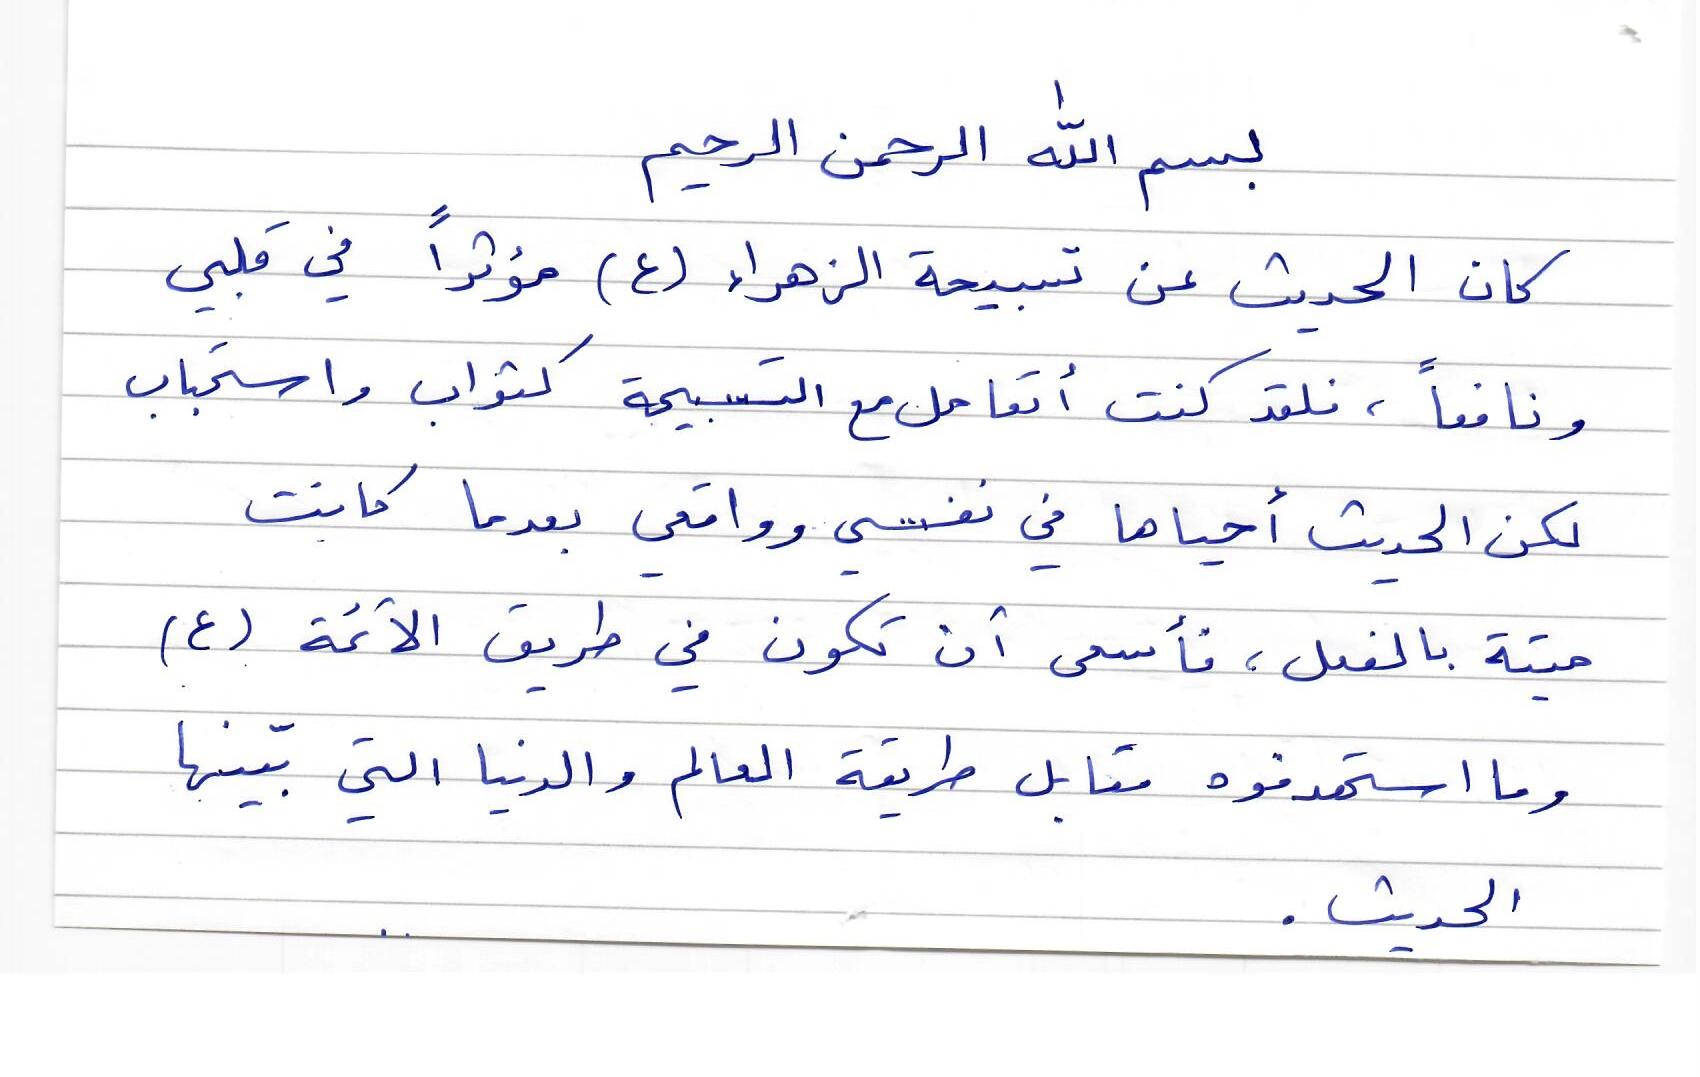 بسم الله الرحمن الرحيم
كان الحديث عن تسبيحة الزهراء (ع) مؤثراً في قلبي
ونافعاً ، فلقد كنت أتعامل مع التسبيحة كثواب واستحباب
لكن الحديث أحياها في نفسي وواقعي بعدما كانت
ميتة بالفعل ، فأسعى أن تكون في طريق الأئمة (ع)
وما استهدفوه مقابل طريقة العالم والدنيا التي بيّنها
الحديث .